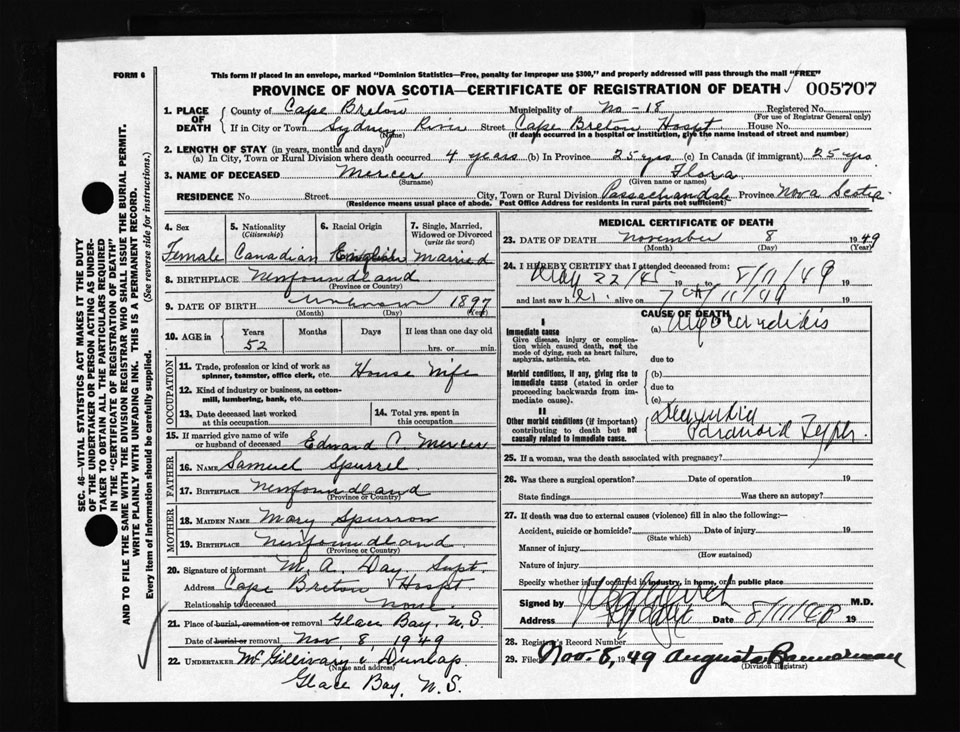 FORM 6
This form if placed in an envelope, marked "Dominion Statistics—Free, penalty for improper use $300," and properly addressed will pass through the mail "FREE"
PROVINCE OF NOVA SCOTIA—CERTIFICATE OF REGISTRATION OF DEATH ✓ 005707
1. PLACE OF DEATH
County of Cape Breton Municipality of No-18 Registered No.
(For use of Registrar General only)
If in City or Town Sydney River Street Cape Breton Hospt House No.
(Name) (If death occurred in a hospital or institution, give the name instead of street and number)
2. LENGTH OF STAY (in years, months and days)
(a) In City, Town or Rural Division where death occurred 4 years (b) In Province 25 yrs (c) In Canada (if immigrant) 25 yrs.
3. NAME OF DECEASED Mercer Flora
(Surname) (Given name or names)
RESIDENCE No. Street City, Town or Rural Division Passchendale Province Nova Scotia
(Residence means usual place of abode. Post Office Address for residents in rural parts not sufficient)
4. Sex
Female
5. Nationality
(Citizenship)
Canadian
6. Racial Origin
English
7. Single, Married, Widowed or Divorced
(write the word)
Married
8. BIRTHPLACE Newfoundland
(Province or Country)
9. DATE OF BIRTH Unknown 1897
(Month) (Day) (Year)
10. AGE IN
Years Months Days If less than one day old
52 hrs. or min.
OCCUPATION
11. Trade, profession or kind of work as spinner, teamster, office clerk, etc. House Wife
12. Kind of industry or business, as cotton-mill, lumbering, bank, etc.
13. Date deceased last worked at this occupation
14. Total yrs. spent in this occupation
15. If married give name of wife or husband of deceased Edward C. Mercer
FATHER
16. NAME Samuel Spurrel
17. BIRTHPLACE Newfoundland
(Province or Country)
MOTHER
18. MAIDEN NAME Mary Spurron
19. BIRTHPLACE Newfoundland
(Province or Country)
20. Signature of informant M. A. Day. Supt.
Address Cape Breton Hospt.
Relationship to deceased None
21. Place of burial, cremation or removal Glace Bay, N.S.
Date of burial or removal Nov. 8, 1949
22. UNDERTAKER McGillivary & Dunlap
(Name and address)
Glace Bay, N.S.
MEDICAL CERTIFICATE OF DEATH
23. DATE OF DEATH November 8 1949
(Month) (Day) (Year)
24. I HEREBY CERTIFY that I attended deceased from:
22 19 to 8/11/49
and last saw h alive on 7 11/49
CAUSE OF DEATH
I
Immediate cause
Give disease, injury or complication which caused death, not the mode of dying, such as heart failure, asphyxia, asthenia, etc.
(a) Myocarditis
due to
Morbid conditions, if any, giving rise to immediate cause (stated in order proceeding backwards from immediate cause).
(b)
due to
(c)
II
Other morbid conditions (if important) contributing to death but not causally related to immediate cause.
Dementia
Paranoid
25. If a woman, was the death associated with pregnancy?
26. Was there a surgical operation? Date of operation 19
State findings Was there an autopsy?
27. If death was due to external causes (violence) fill in also the following:—
Accident, suicide or homicide? Date of injury 19
(State which)
Manner of injury
(How sustained)
Nature of injury
Specify whether injury occurred in industry, in home, or in public place
Signed by M.D.
Address Date 19
28. Registrar's Record Number
29. Filed Nov. 8, 1949 Augusta Bannerman
(Division Registrar)
SEC. 46—VITAL STATISTICS ACT MAKES IT THE DUTY
OF THE UNDERTAKER OR PERSON ACTING AS UNDER-
TAKER TO OBTAIN ALL THE PARTICULARS REQUIRED
IN THE "CERTIFICATE OF REGISTRATION OF DEATH"
AND TO FILE THE SAME WITH THE DIVISION REGISTRAR WHO SHALL ISSUE THE BURIAL PERMIT.
WRITE PLAINLY WITH UNFADING INK. THIS IS A PERMANENT RECORD.
Every item of information should be carefully supplied. (See reverse side for instructions.)